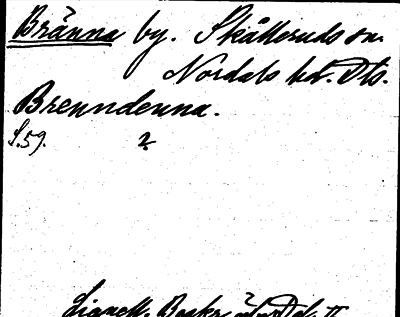 Bränna by. Skålleruds sn.
Nordals hd. Dls.
Brenndenna.
S. 59. 2
Lignell, Beskr.